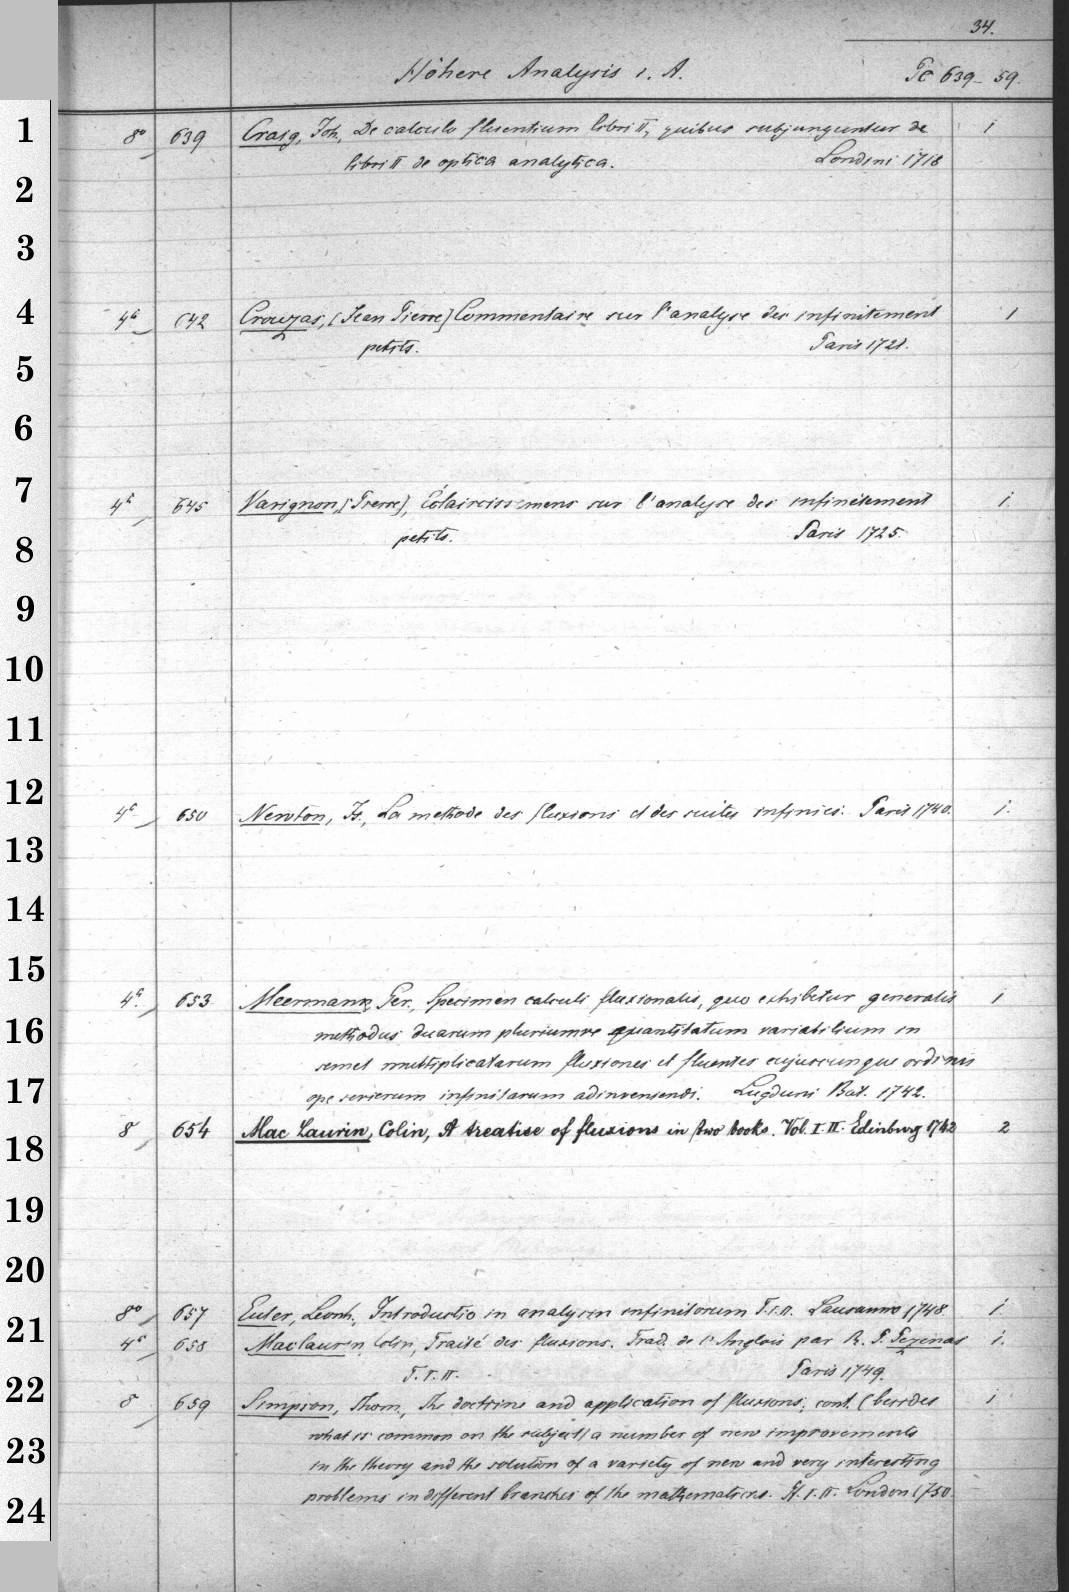 34.
Höhere Analysis i. A. Pc 639-59.
1
8° 639 Craig, Joh., De calculo fluentium libri II, quibus subjunguntur de 1
libri II de optica analytica. Londini 1718
2
3
4
4° 642 Crouzas, [Jean Pierre] Commentaire sur l'analyse des infinitement 1
petits. Paris 1721.
5
6
7
4° 645 Varignon, [Pierre], Éclaircissemens sur l'analyse des infinitement 1.
petits. Paris 1725.
8
9
10
11
12
4° 650 Newton, Is., La methode des fluxions et des suites infinies. Paris 1740. 1.
13
14
15
4° 653 Meermann, Ger., Specimen calculi fluxionalis, quo exhibetur generalis 1
16
methodus duarum pluriumve quantitatum variabilium in
semet multiplicatarum fluxiones et fluentes cujuscunque ordinis
17
ope serierum infinitarum adinveniendi. Lugduni Bat. 1742.
8 654 Mac Laurin, Colin, A treatise of fluxions in two books. Vol. I. II. Edinburg 1742 2
18
19
20
8° 657 Euler, Leonh., Introductio in analysin infinitorum T. I. II. Lausanno 1748 1
21
4° 658 Maclaurin, Colin, Traité des fluxions. Trad. de l'Anglois par R. P. Pezenas 1.
T. I. II. Paris 1749.
22
8 659 Simpson, Thom., The doctrine and application of fluxions; cont. (besides 1
what is common on the subject) a number of new improvements
23
in the theory and the solution of a variety of new and very interesting
problems in different branches of the mathematics. P. I. II. London 1750.
24